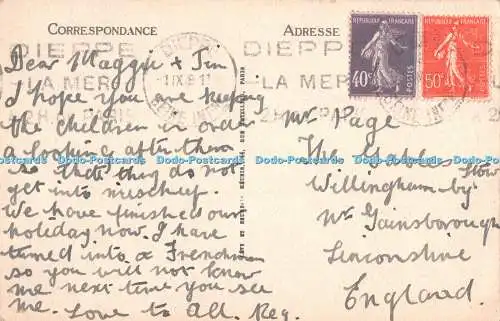 CORRESPONDANCE
ADRESSE
REPUBLIQUE FRANÇAISE
40c
POSTES
REPUBLIQUE FRANÇAISE
50c
POSTES
DIEPPE
LA MER
DIEPPE
LA MER
Dear Maggie & Jim
I hope you are keeping
the children in order
& looking after them
so that they do not
get into mischief.
We have finished our
holiday now. I have
turned into a Frenchman
so you will not know
me next time you see
me. Love to All. Reg.
Mr Page
The Gables Stow
Willingham-by
Nr Gainsborough
Lincolnshire
England.
Dodo-Postcards Dodo-Postcards Dodo-Postcards